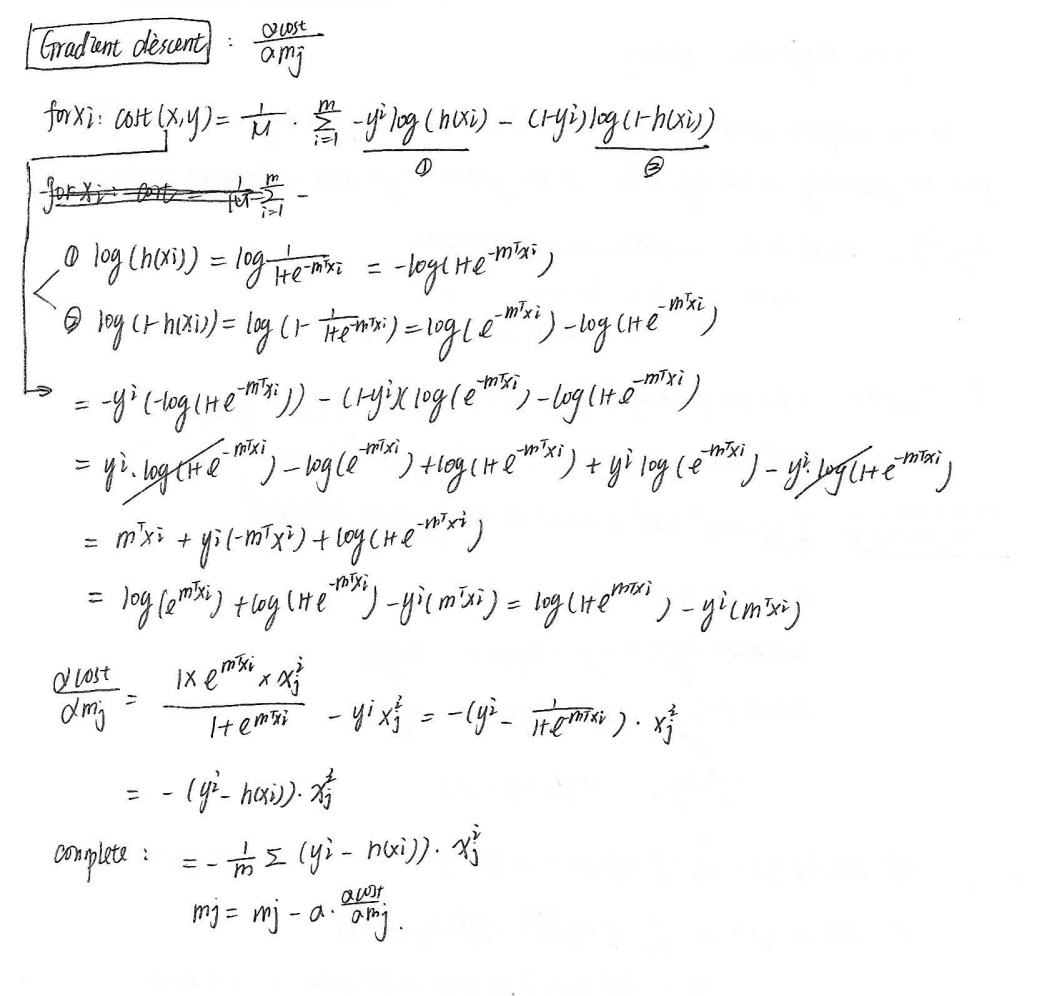 Gradient descent : ∂cost/∂mj
for xi: cost(x,y) = 1/M · Σ_{i=1}^{m} -y^i log(h(xi)) - (1-y^i) log(1-h(xi))
① ②
for xi: cost = 1/M Σ_{i=1}^{m} -
① log(h(xi)) = log 1/(1+e^{-m^T xi}) = -log(1+e^{-m^T xi})
② log(1-h(xi)) = log(1- 1/(1+e^{-m^T xi})) = log(e^{-m^T xi}) - log(1+e^{-m^T xi})
= -y^i(-log(1+e^{-m^T xi})) - (1-y^i)(log(e^{-m^T xi}) - log(1+e^{-m^T xi})
= y^i · log(1+e^{-m^T xi}) - log(e^{-m^T xi}) + log(1+e^{-m^T xi}) + y^i log(e^{-m^T xi}) - y^i · log(1+e^{-m^T xi})
= m^T xi + y^i(-m^T x^i) + log(1+e^{-m^T x^i})
= log(e^{m^T xi}) + log(1+e^{-m^T xi}) - y^i(m^T xi) = log(1+e^{m^T xi}) - y^i(m^T xi)
∂cost/∂mj = (1×e^{m^T xi} × x_j^i)/(1+e^{m^T xi}) - y^i x_j^i = -(y^i - 1/(1+e^{-m^T xi})) · x_j^i
= -(y^i - h(xi)) · x_j^i
complete : = - 1/m Σ (y^i - h(xi)) · x_j^i
mj = mj - a · ∂cost/∂mj.